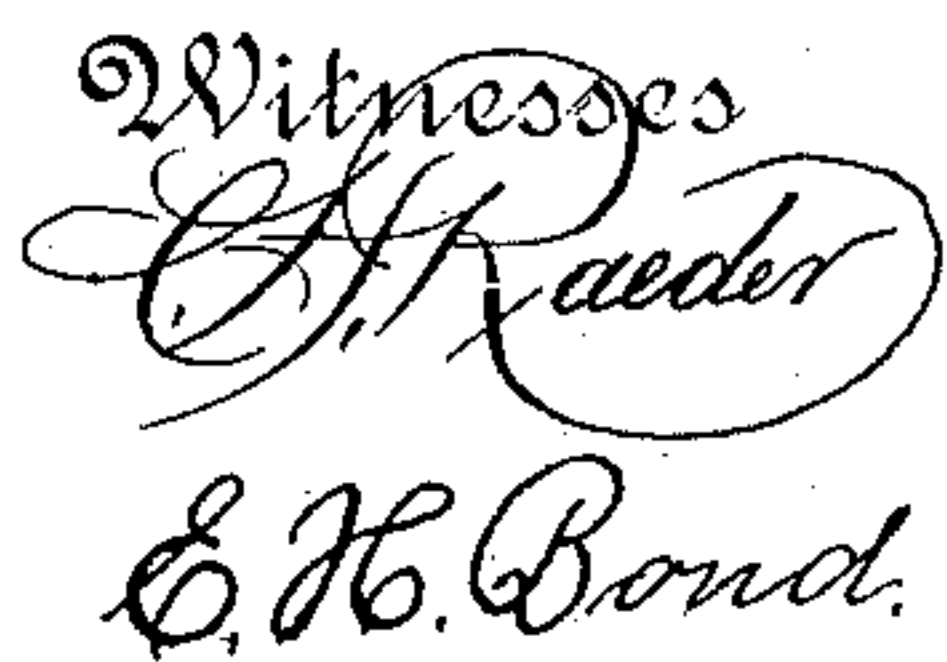 Witnesses
Raeder
E. H. Bond.